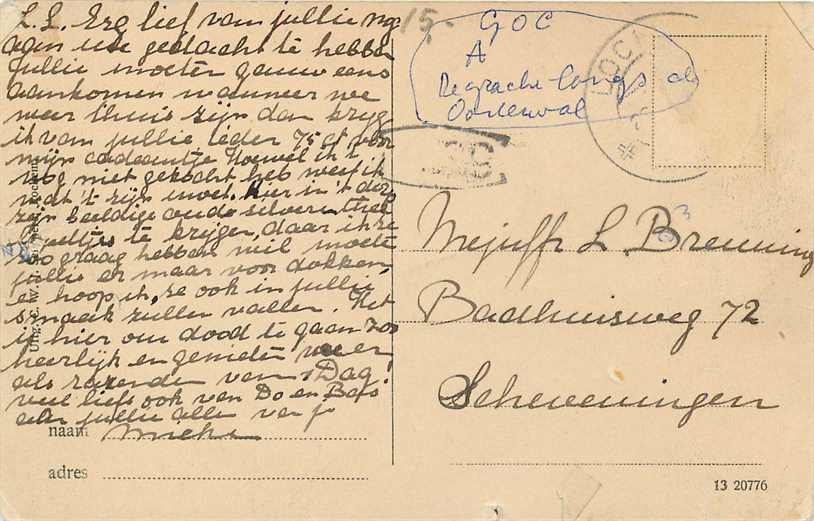 L. L. Erg lief van jullie nog
aan me gedacht te hebben
jullie moeten gauw eens
aankomen wanneer we
weer thuis zijn dan kryg
ik van jullie ieder 75 ct voor
mijn cadeautje Hoewel ik 't
nog niet gekocht heb weet ik
wat 't zijn moet. Hier in 't dorp
zijn beeldige oude zilveren theel
epeltjes te krijgen, daar ik ze
zoo graag hebben wil moete
jullie er maar voor dokken
en hoop ik, ze ook in jullie
smaak zullen vallen. Het
is hier om dood te gaan zoo
heerlijk en genieten we er
als razenden van. Dag
veel liefs ook van Do en Bas
aan jullie allen van je
naam Mieke
adres
15-
GOC
A
De gracht langs de
Oosterwal
LOC
Mejuffr L. Breuning
Badhuisweg 72
Scheveningen
13 20776